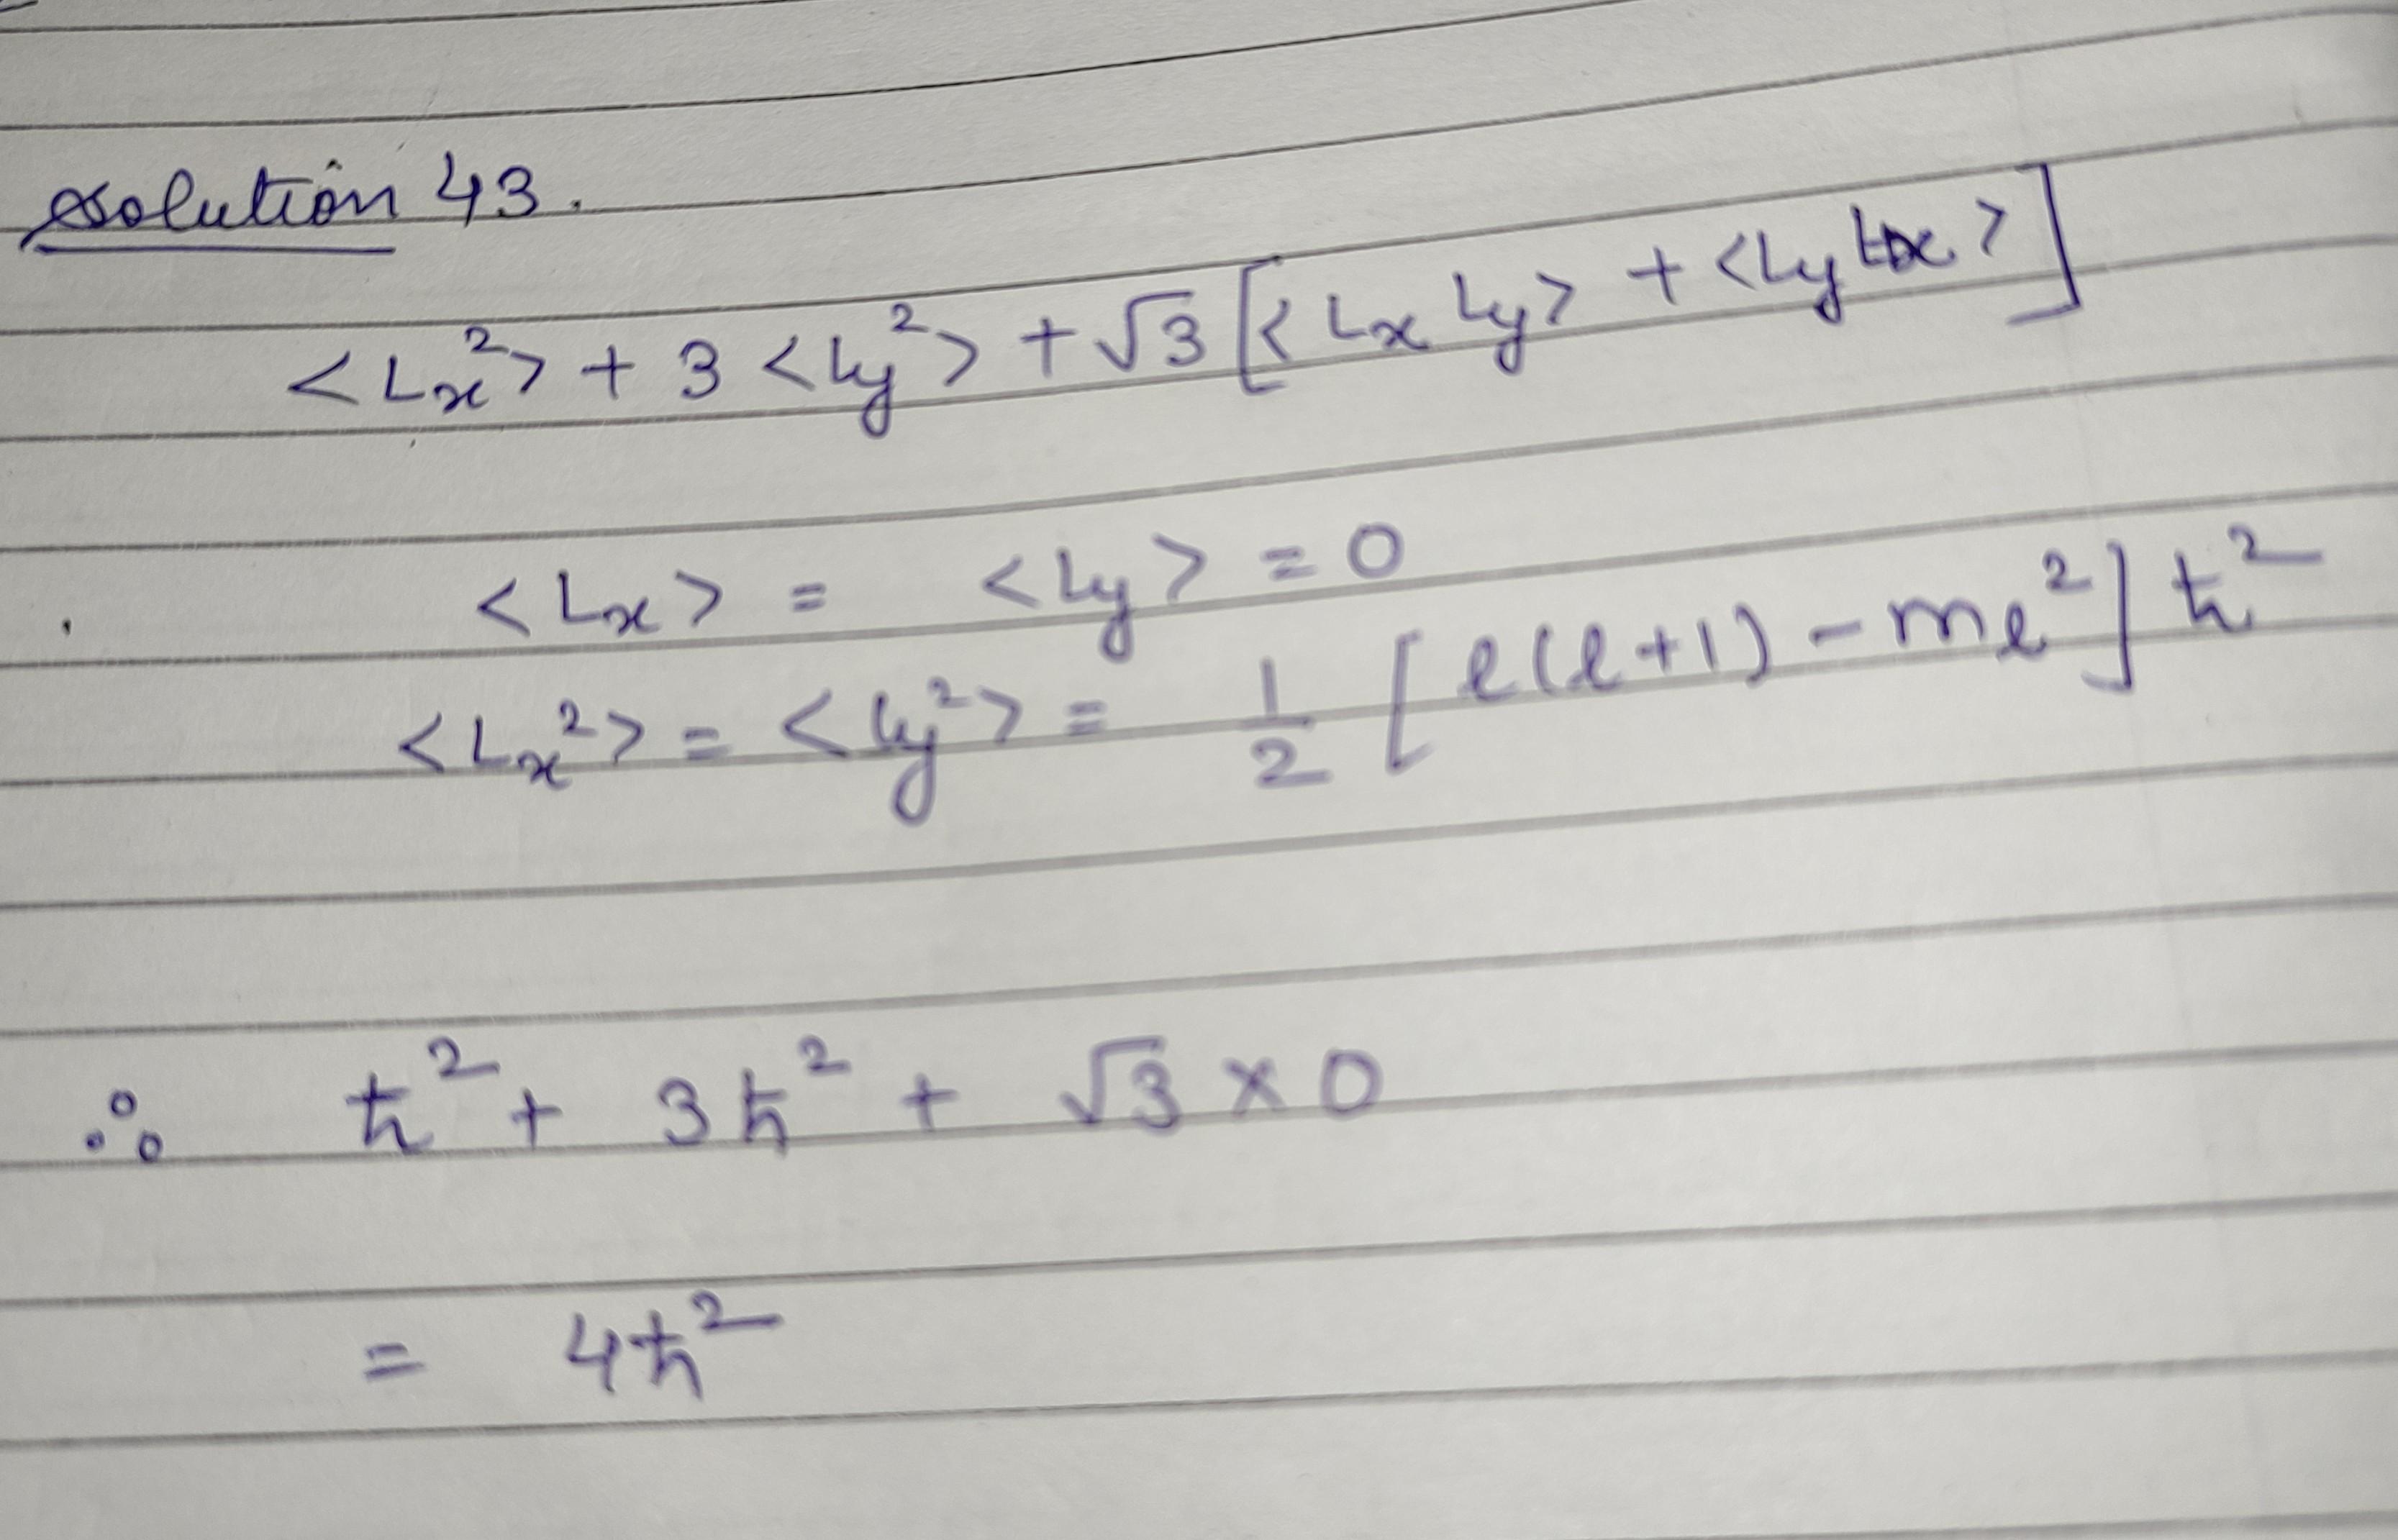 solution 43.
<Lx²> + 3 <Ly²> + √3 [<Lx Ly> + <Ly Lx>]
<Lx> = <Ly> = 0
<Lx²> = <Ly²> = 1/2 [l(l+1) - ml²] ℏ²
∴ ℏ² + 3ℏ² + √3 × 0
= 4ℏ²